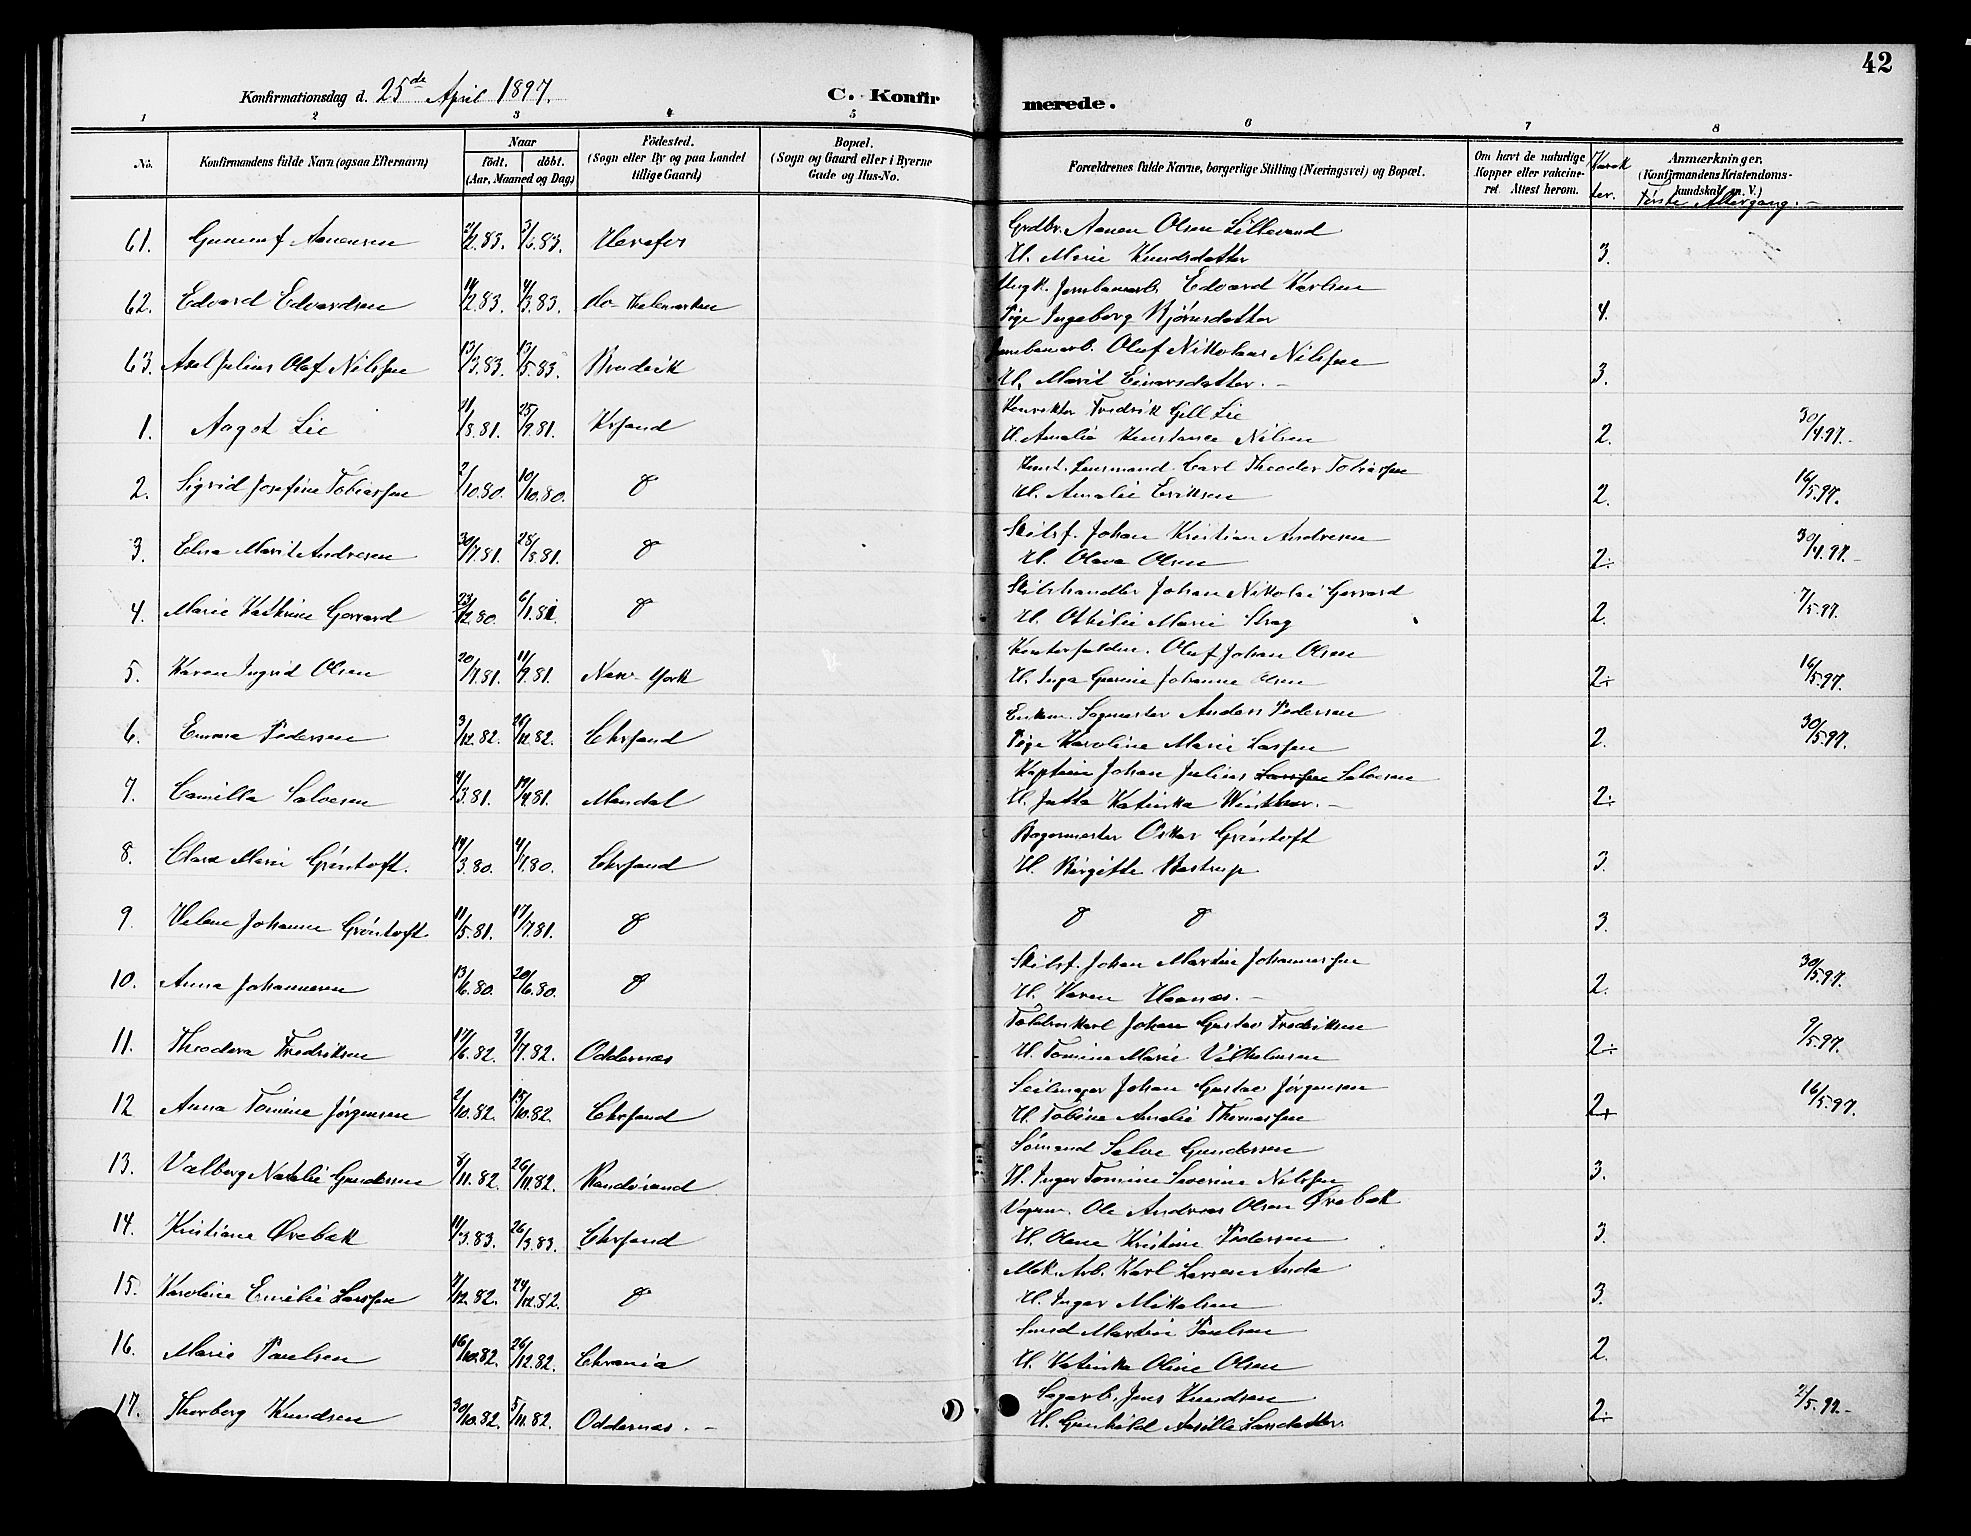 42
Konfirmationsdag d. 25de April 1897.
C. Konfirmerede.
1 2 3 4 5 6 7 8
No. Konfirmandens fulde Navn (ogsaa Efternavn) Naar födt. döbt. (Aar, Maaned og Dag) Födested. (Sogn eller By og paa Landet tillige Gaard) Bopæl. (Sogn og Gaard eller i Byerne Gade og Hus-No. Forældrenes fulde Navne, borgerlige Stilling (Næringsvei) og Bopæl. Om havt de naturlige Kopper eller vakcineret. Attest herom. Karakter. Anmærkninger. (Konfirmandens Kristendomskundskab m. V.) Første Altergang.
61. Gunuuf Aanensen 83. 3/6.83. Grdbr. Aanen Olsen Lillevand
H. Marie Knudsdatter 3.
62. Edvard Edvardsen 83. 4/3.83. Ungk. Jernbanearb. Edvard Karlsen
Pige Ingeborg Bjørnsdatter 4.
63. Axel Julius Olaf Nilssen 13/3.83. 13/5.83. Jernbanearb. Oluf Nikolai Nilssen
H. Marit Einarsdatter. 3.
1. Aagot Lie 21/8.81. 25/9.81. Krsand Konrektor Fredrik Gill Lie
H. Amalie Konstance Nilsen 2. 30/4.97.
2. Sigrid Josefine Tobiassen 2/10.80. 10/10.80. d Konst. Lensmand Carl Theodor Tobiassen
H. Amalie Eriksen 2. 16/5.97.
3. Elna Marie Andresen 30/7.81. 28/8.81. d Skibsf. Johan Kristian Andresen
H. Olava Olsen 2. 30/4.97.
4. Marie Kathrine Gorrard 23/12.80. 6/1.81. d Skibshandler Johan Nikolai Gorrard
H. Othilie Marie Strag 2. 7/5.97.
5. Karen Ingrid Olsen 20/7.81. 11/9.81. New York Oluf Johan Olsen
H. Inga Gurine Johanne Olsen 2. 16/5.97.
6. Emma Pedersen 3/12.82. 12.82. Chrsand Enkem. Sagmester Anders Pedersen
Pige Karoline Marie Larsen 2. 30/5.97.
7. Camilla Salvesen 4/3.81. 17/4.81. Mandal Kaptein Johan Julius Larssen Salvesen
H. Jutta Katinka Winther. 2.
8. Clara Marie Gröntoft. 14/3.80. 4/7.80. Chrsand Bagermester Oskar Gröntoft
H. Birgitte Bastrup 3.
9. Helene Johanne Gröntoft. 11/5.81. 17/7.81. d d d 3.
10. Anna Johannesen 13/6.80. 20/6.80. d Skibsf. Johan Martin Johannessen
H. Karen Haanæs. 2. 30/5.97.
11. Theodora Fredriksen 17/6.82. 9/7.82. Oddernæs Johan Gustav Fredriksen
H. Tomine Marie Vilhelmsen 2. 9/5.97.
12 Anna Tomine Jørgensen 2/10.82. 15/10.82. Chrsand Seilmager Johan Gustav Jørgensen
H. Tobine Amalie Thomassen 2+ 16/5.97.
13. Valborg Natalie Gundersen 8/11.82. 26/11.82. Randösund Sømand Salve Gundersen
H. Inger Tomine Severine Nilssen 3.
14. Kristiane Øvebæk 11/3.83. 26/3.83. Chrsand Vognm. Ole Andreas Olsen Øvebæk
H. Olene Kristine Pedersen 3.
15. Karoline Emilie Larssen 7/12.82. 24/12.82. d Mek. Arb. Karl Larsen Anda
H. Inger Mikalsen 3.
16. Marie Paulsen 16/10.82. 26/12.82. Chrania Smed Martin Paulsen
H. Katinka Oline Olsen 2.
17. Thorborg Knudsen 30/10.82. 5/11.82. Oddernæs. Sagarb. Jens Knudsen
H. Gunhild Aasille Larsdatter 2. 2/5.97.